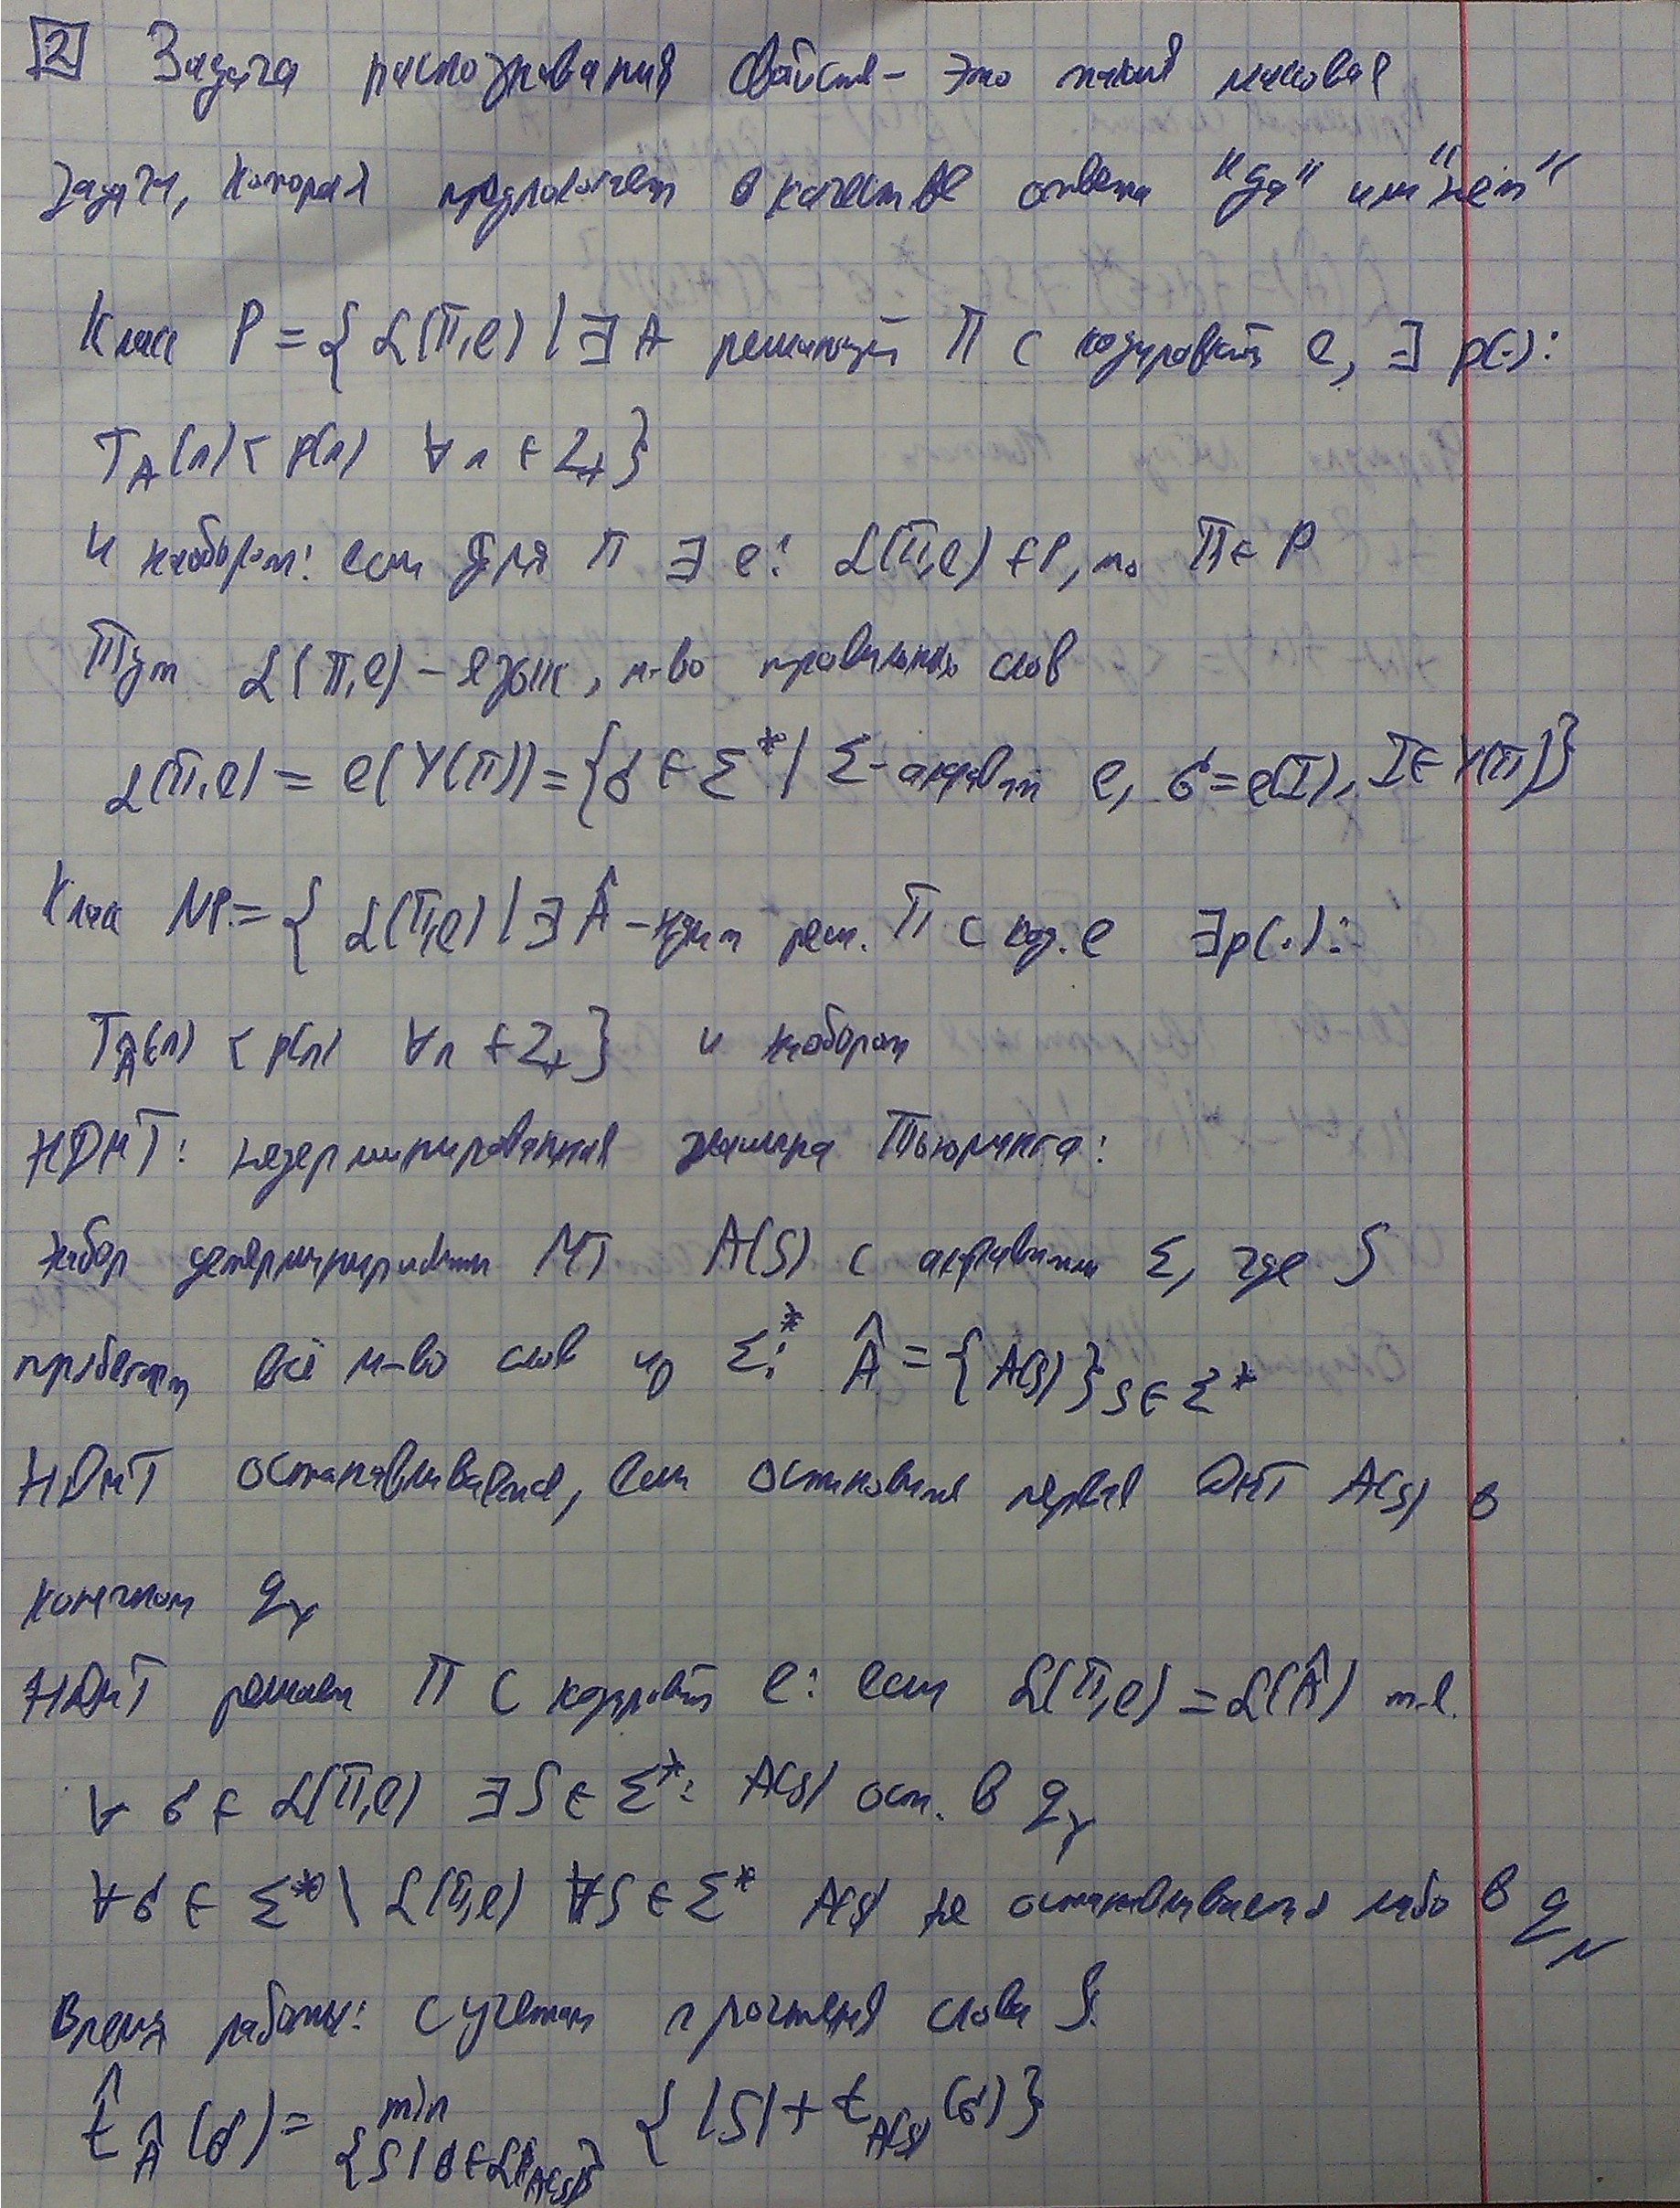 2 Задача распознавания свойств - это такая массовая
задача, которая предполагает в качестве ответа "да" или "нет"
Класс P = { L(П,e) | ∃ A решающий П с кодировкой e, ∃ p(·):
T_A(n) < p(n) ∀ n ∈ Z_+ }
и наоборот: если для П ∃ e: L(П,e) ∈ P, то П ∈ P
Тут L(П,e) - язык, м-во правильных слов
L(П,e) = e(Y(П)) = { σ ∈ Σ* | Σ - алфавит e, σ = e(I), I ∈ Y(П) }
Класс NP = { L(П,e) | ∃ Â - ндмт реш. П с код. e ∃ p(·):
T_Â(n) < p(n) ∀ n ∈ Z_+ } и наоборот
НДМТ: машина Тьюринга:
набор МТ A(S) с алфавитом Σ, где S
пробегает всё м-во слов из Σ*: Â = { A(S) }_{S ∈ Σ*}
НДМТ останавливается, если остановится первая ДМТ A(S) в
конечном q_Y
НДМТ решает П с кодировкой e: если L(П,e) = L(Â) т.е.
∀ σ ∈ L(П,e) ∃ S ∈ Σ*: A(S) ост. в q_Y
∀ σ ∈ Σ* \ L(П,e) ∀ S ∈ Σ* A(S) не останавливается либо в q_N
Время работы: с учетом прочтения слова S:
t̂_Â(σ) = min_{ {S | σ ∈ L(A(S))} } { |S| + t_{A(S)}(σ) }